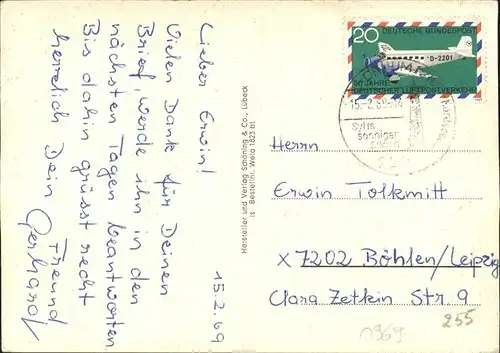 Lieber Erwin!
Vielen Dank für Deinen
Brief, werde ihn in den
nächsten Tagen beantworten.
Bis dahin grüsst recht
herzlich Dein Freund
Gerhard
15.2.69
Hersteller und Verlag Schöning & Co., Lübeck
Bestellnr. Wela 1823 bt
20
DEUTSCHE BUNDESPOST
D-2201
50 JAHRE
DEUTSCHER LUFTPOSTVERKEHR
HÖRNUM
15.-2.69-
Sylts
sonniger
Süden
Herrn
Erwin Tolkmitt
x 7202 Böhlen/Leipzig
Clara Zetkin Str. 9
1969
255